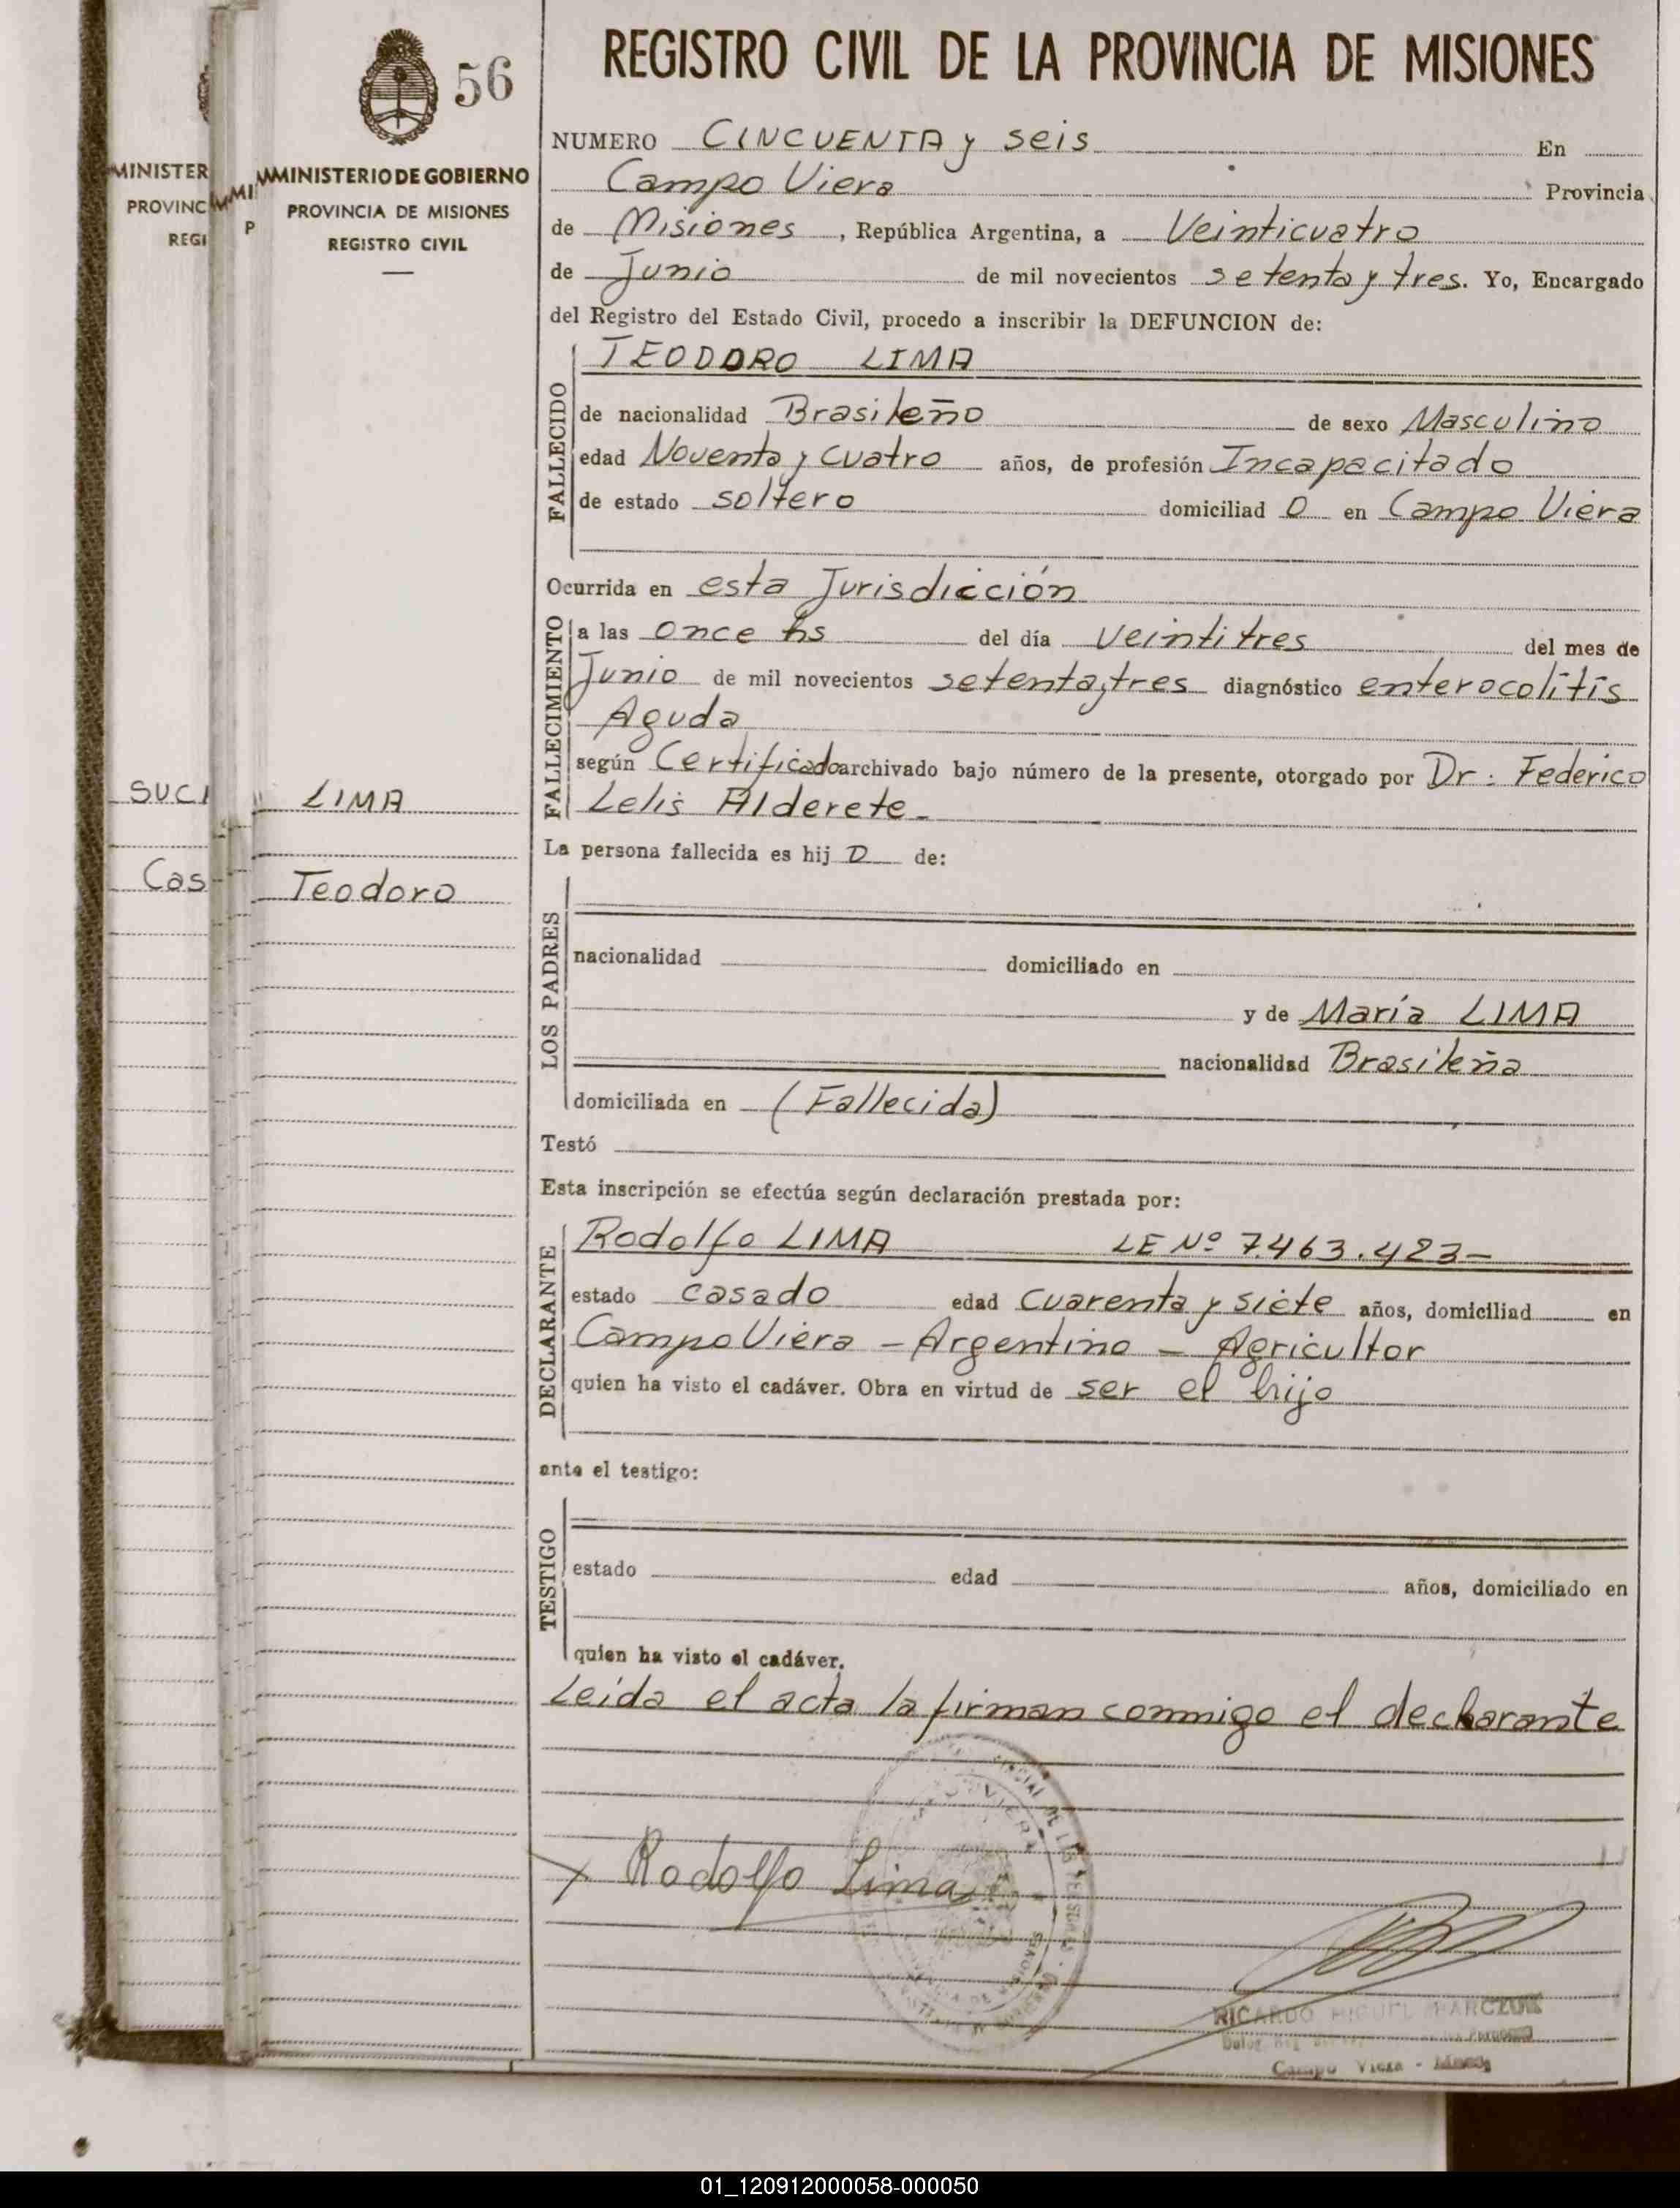 REGISTRO CIVIL DE LA PROVINCIA DE MISIONES
56
MINISTERIO DE GOBIERNO
PROVINCIA DE MISIONES
REGISTRO CIVIL
MINISTER
PROVINC
REGI
MI
P
NUMERO CINCUENTA y seis En
Campo Viera Provincia
de Misiones, República Argentina, a Veinticuatro
de Junio de mil novecientos setenta y tres. Yo, Encargado
del Registro del Estado Civil, procedo a inscribir la DEFUNCION de:
FALLECIDO
TEODORO LIMA
de nacionalidad Brasileño de sexo Masculino
edad Noventa y cuatro años, de profesión Incapacitado
de estado soltero domiciliad o en Campo Viera
Ocurrida en esta Jurisdicción
FALLECIMIENTO
a las once hs del día veintitres del mes de
Junio de mil novecientos setenta y tres diagnóstico enterocolitis
Aguda
según Certificado archivado bajo número de la presente, otorgado por Dr: Federico
Lelis Alderete-
SUCI
LIMA
Cas
Teodoro
La persona fallecida es hij o de:
LOS PADRES
nacionalidad domiciliado en
y de María LIMA
nacionalidad Brasileña
domiciliada en (Fallecida)
Testó
Esta inscripción se efectúa según declaración prestada por:
DECLARANTE
Rodolfo LIMA LE Nº 7.463.423-
estado casado edad cuarenta y siete años, domiciliad en
Campo Viera - Argentino - Agricultor
quien ha visto el cadáver. Obra en virtud de ser el hijo
ante el testigo:
TESTIGO
estado edad años, domiciliado en
quien ha visto el cadáver.
Leida el acta la firman conmigo el declarante
x Rodolfo Lima
RICARDO MIGUEL
Campo Viera - Mnes
01_120912000058-000050